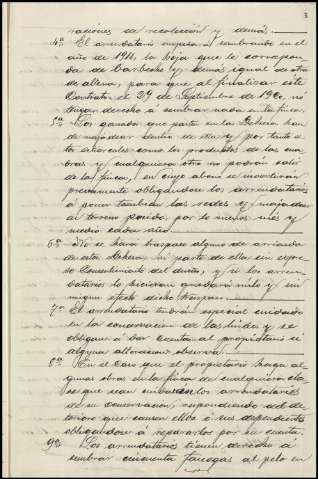 3
raciones de recolección y demás.
4ª El arrendatario empezará sembrando en el
año de 1916, la hoja que le correspon-
da de barbecho y demás igual de otra
de para que al finalizar este
Contrato de 29 de Septiembre de 1920, no
tengan derecho á sembrar nada en la finca.
5ª Los ganados que pasten en la Dehesa han
de majadear dentro de ella y por tanto
los como los productos de las
y cualquiera otro no podrán salir
de la finca, en cuyo abono se invertirán
precisamente obligándose los arrendatarios
á poner tambien las redes y majadear
en terreno por lo menos mes y
medio cada año.
6ª No se hará traspaso alguno de arriendo
de esta Dehesa ni parte de ella sin expre-
so Consentimiento del dueño, y si los arren-
datarios lo hicieran quedará nulo y sin
ningun efecto dicho traspaso.
7ª El arrendatario tendrá especial cuidado
en la conservacion de las lindes y se
obligan á dar cuenta al propietario si
alguna alteracion observa.
8ª En el Caso que el propietario haga al-
gunas obras en la finca de cualquiera cla-
se que sean los arrendatarios
de su conservacion respondiendo del de-
terioro que causen ellos ó sus dependientes
obligandose á repararlos por su cuenta.
9ª Los arrendatarios tienen derecho á
sembrar cincuenta fanegas al pelo en